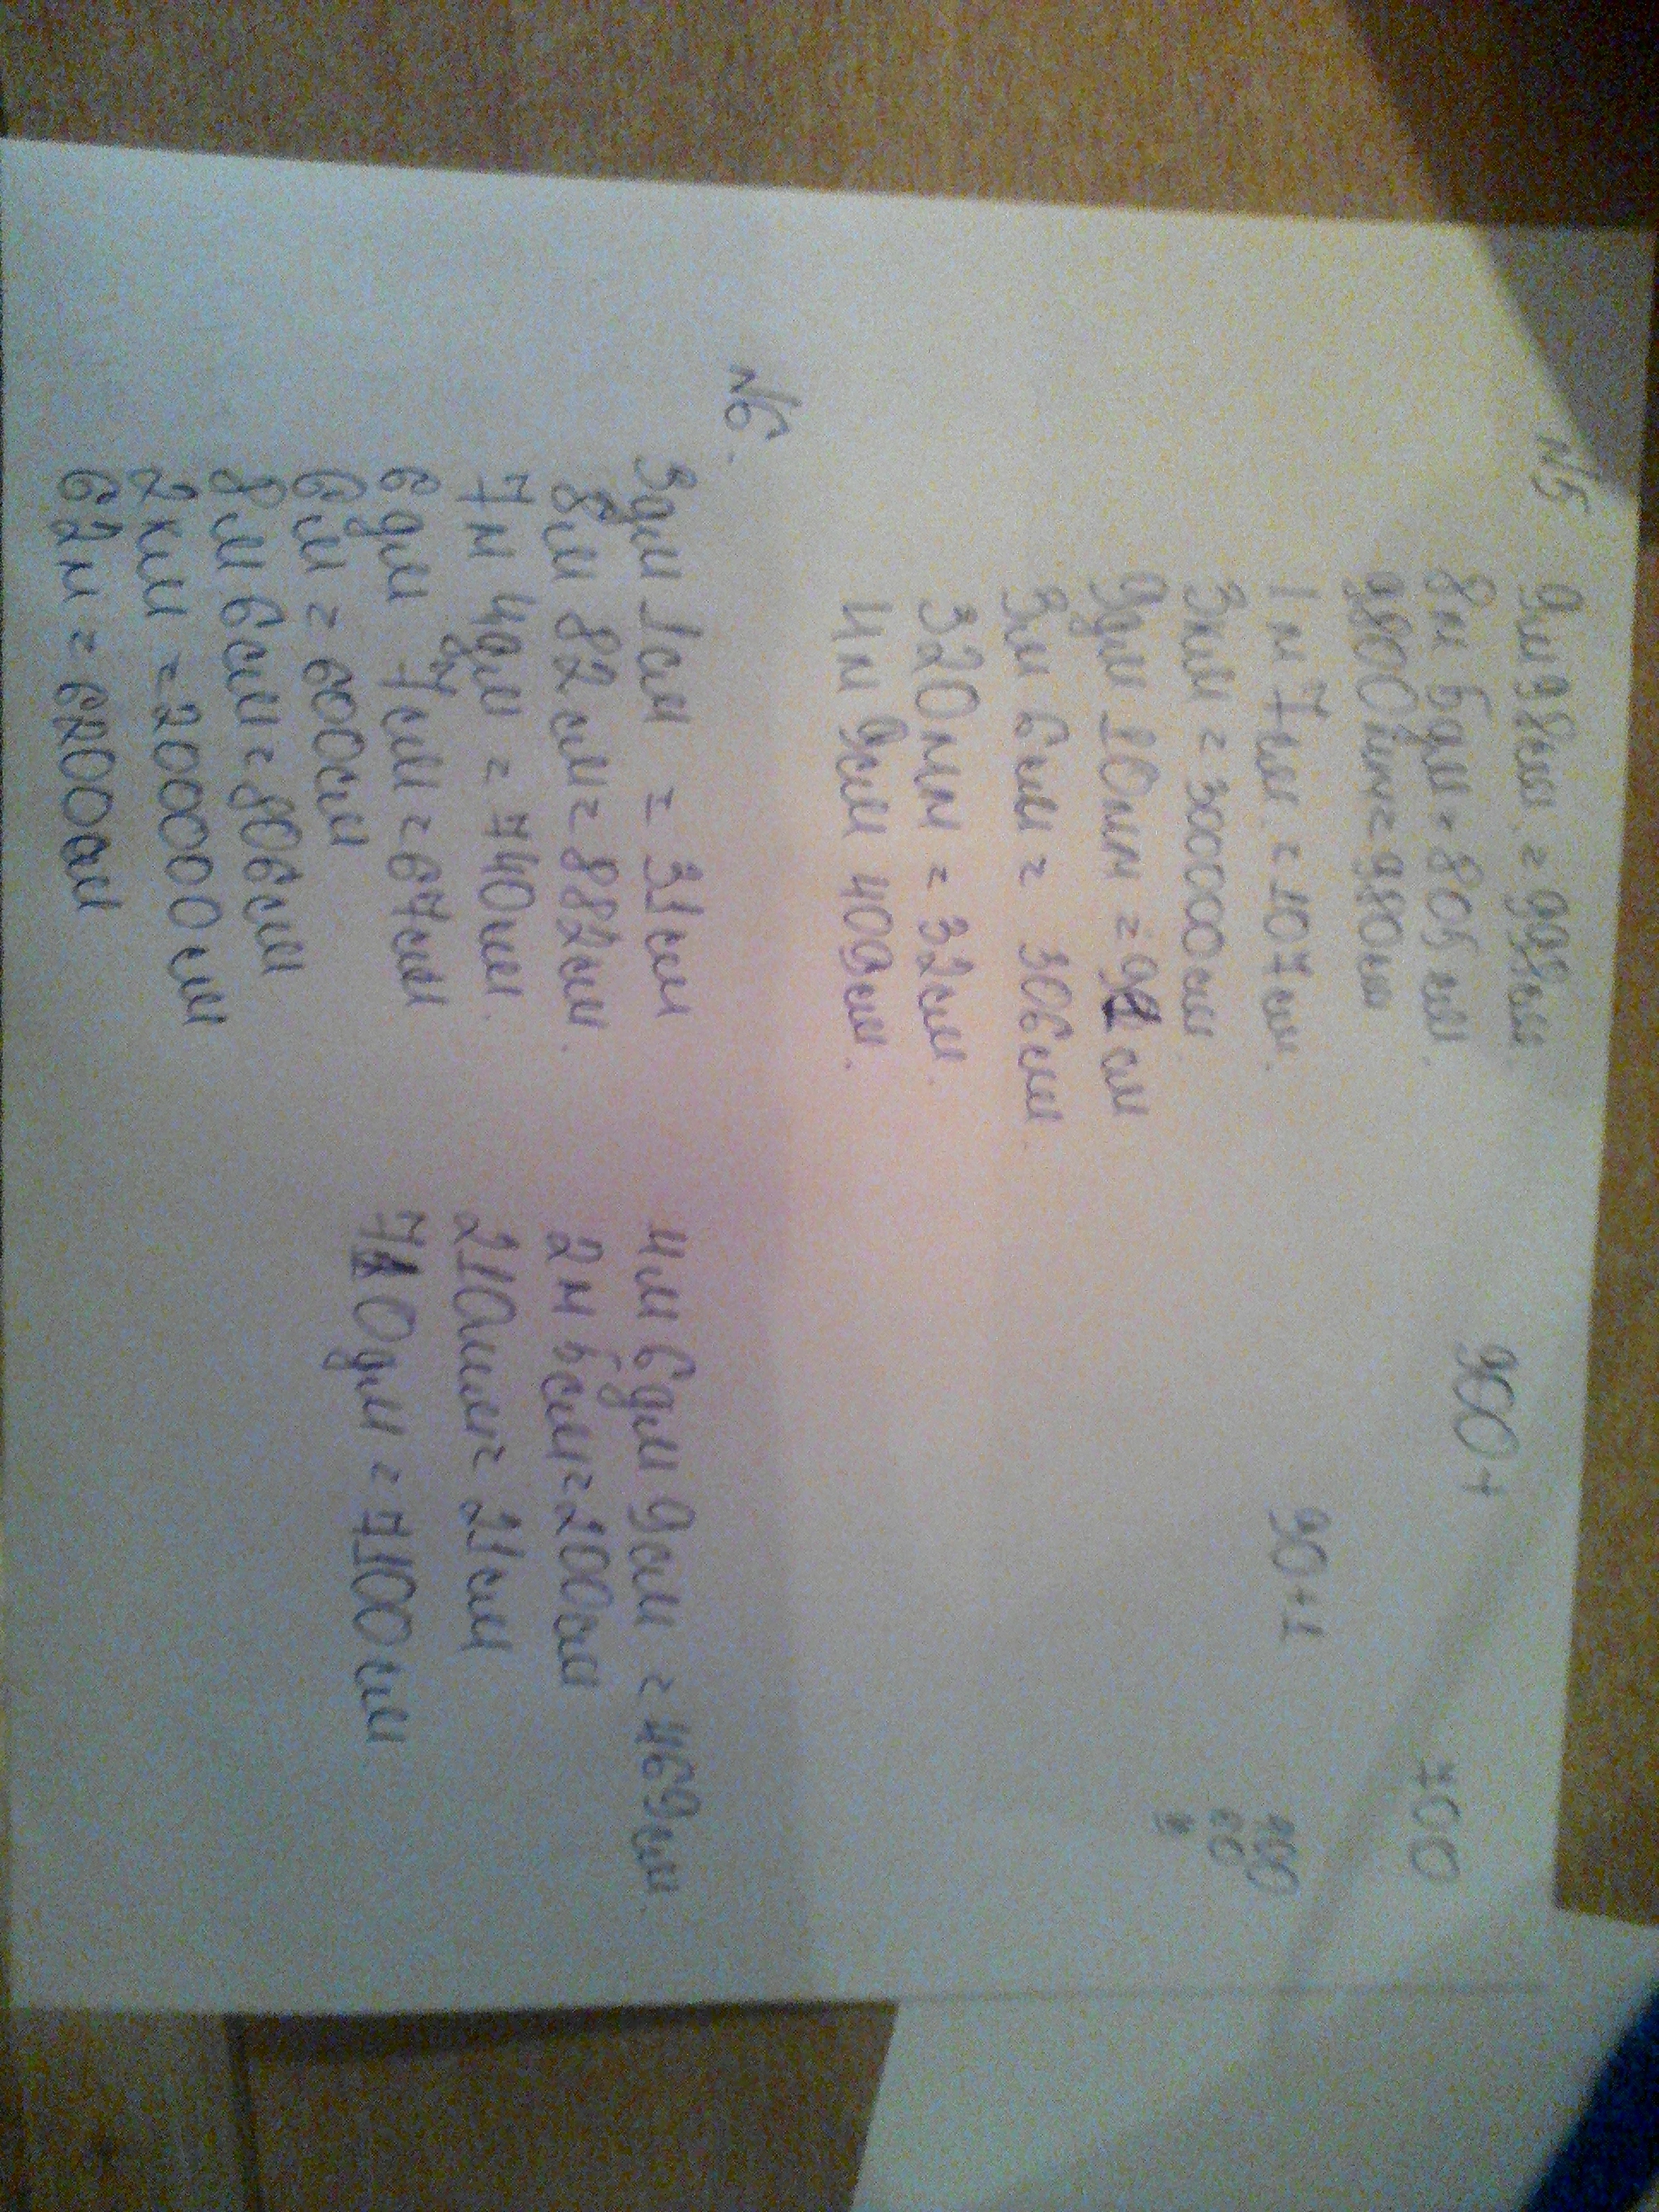 №5
9м 98см. = 998см.
8м 5дм = 805 см.
9800мм = 980см
1 м 7см. = 107см.
3км = 300000см
9дм 10мм = 91см
3м 6см = 306см.
320мм = 32см.
4м 9см 409см.
900+
90+1
700
900
90
1
№6.
3дм 1см = 31см
8м 82см = 882см.
7м 4дм = 740см.
6дм 7см = 67см
6м = 600см
8м 6см = 806см
2км = 200000см
62м = 6200см
4м 6дм 9см = 469см.
2м 5см = 200см
210мм = 21см
710дм = 7100см